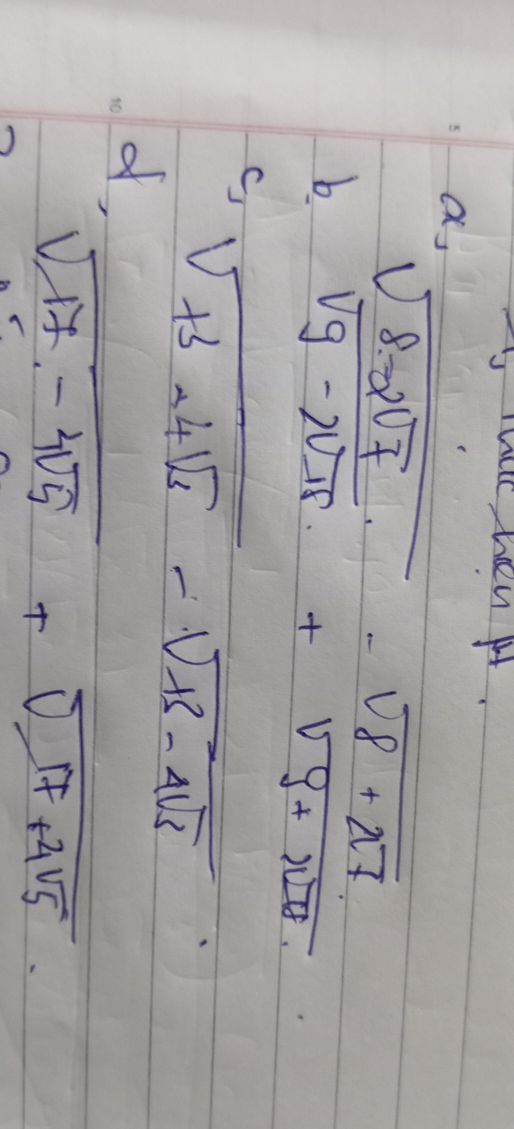 thực hiện pt.
a, √(8-2√7) - √(8+2√7)
b, √(9-2√18) + √(9+2√18).
c, √(13-4√3) - √(13-4√3).
d, √(17-4√5) + √(17+4√5).